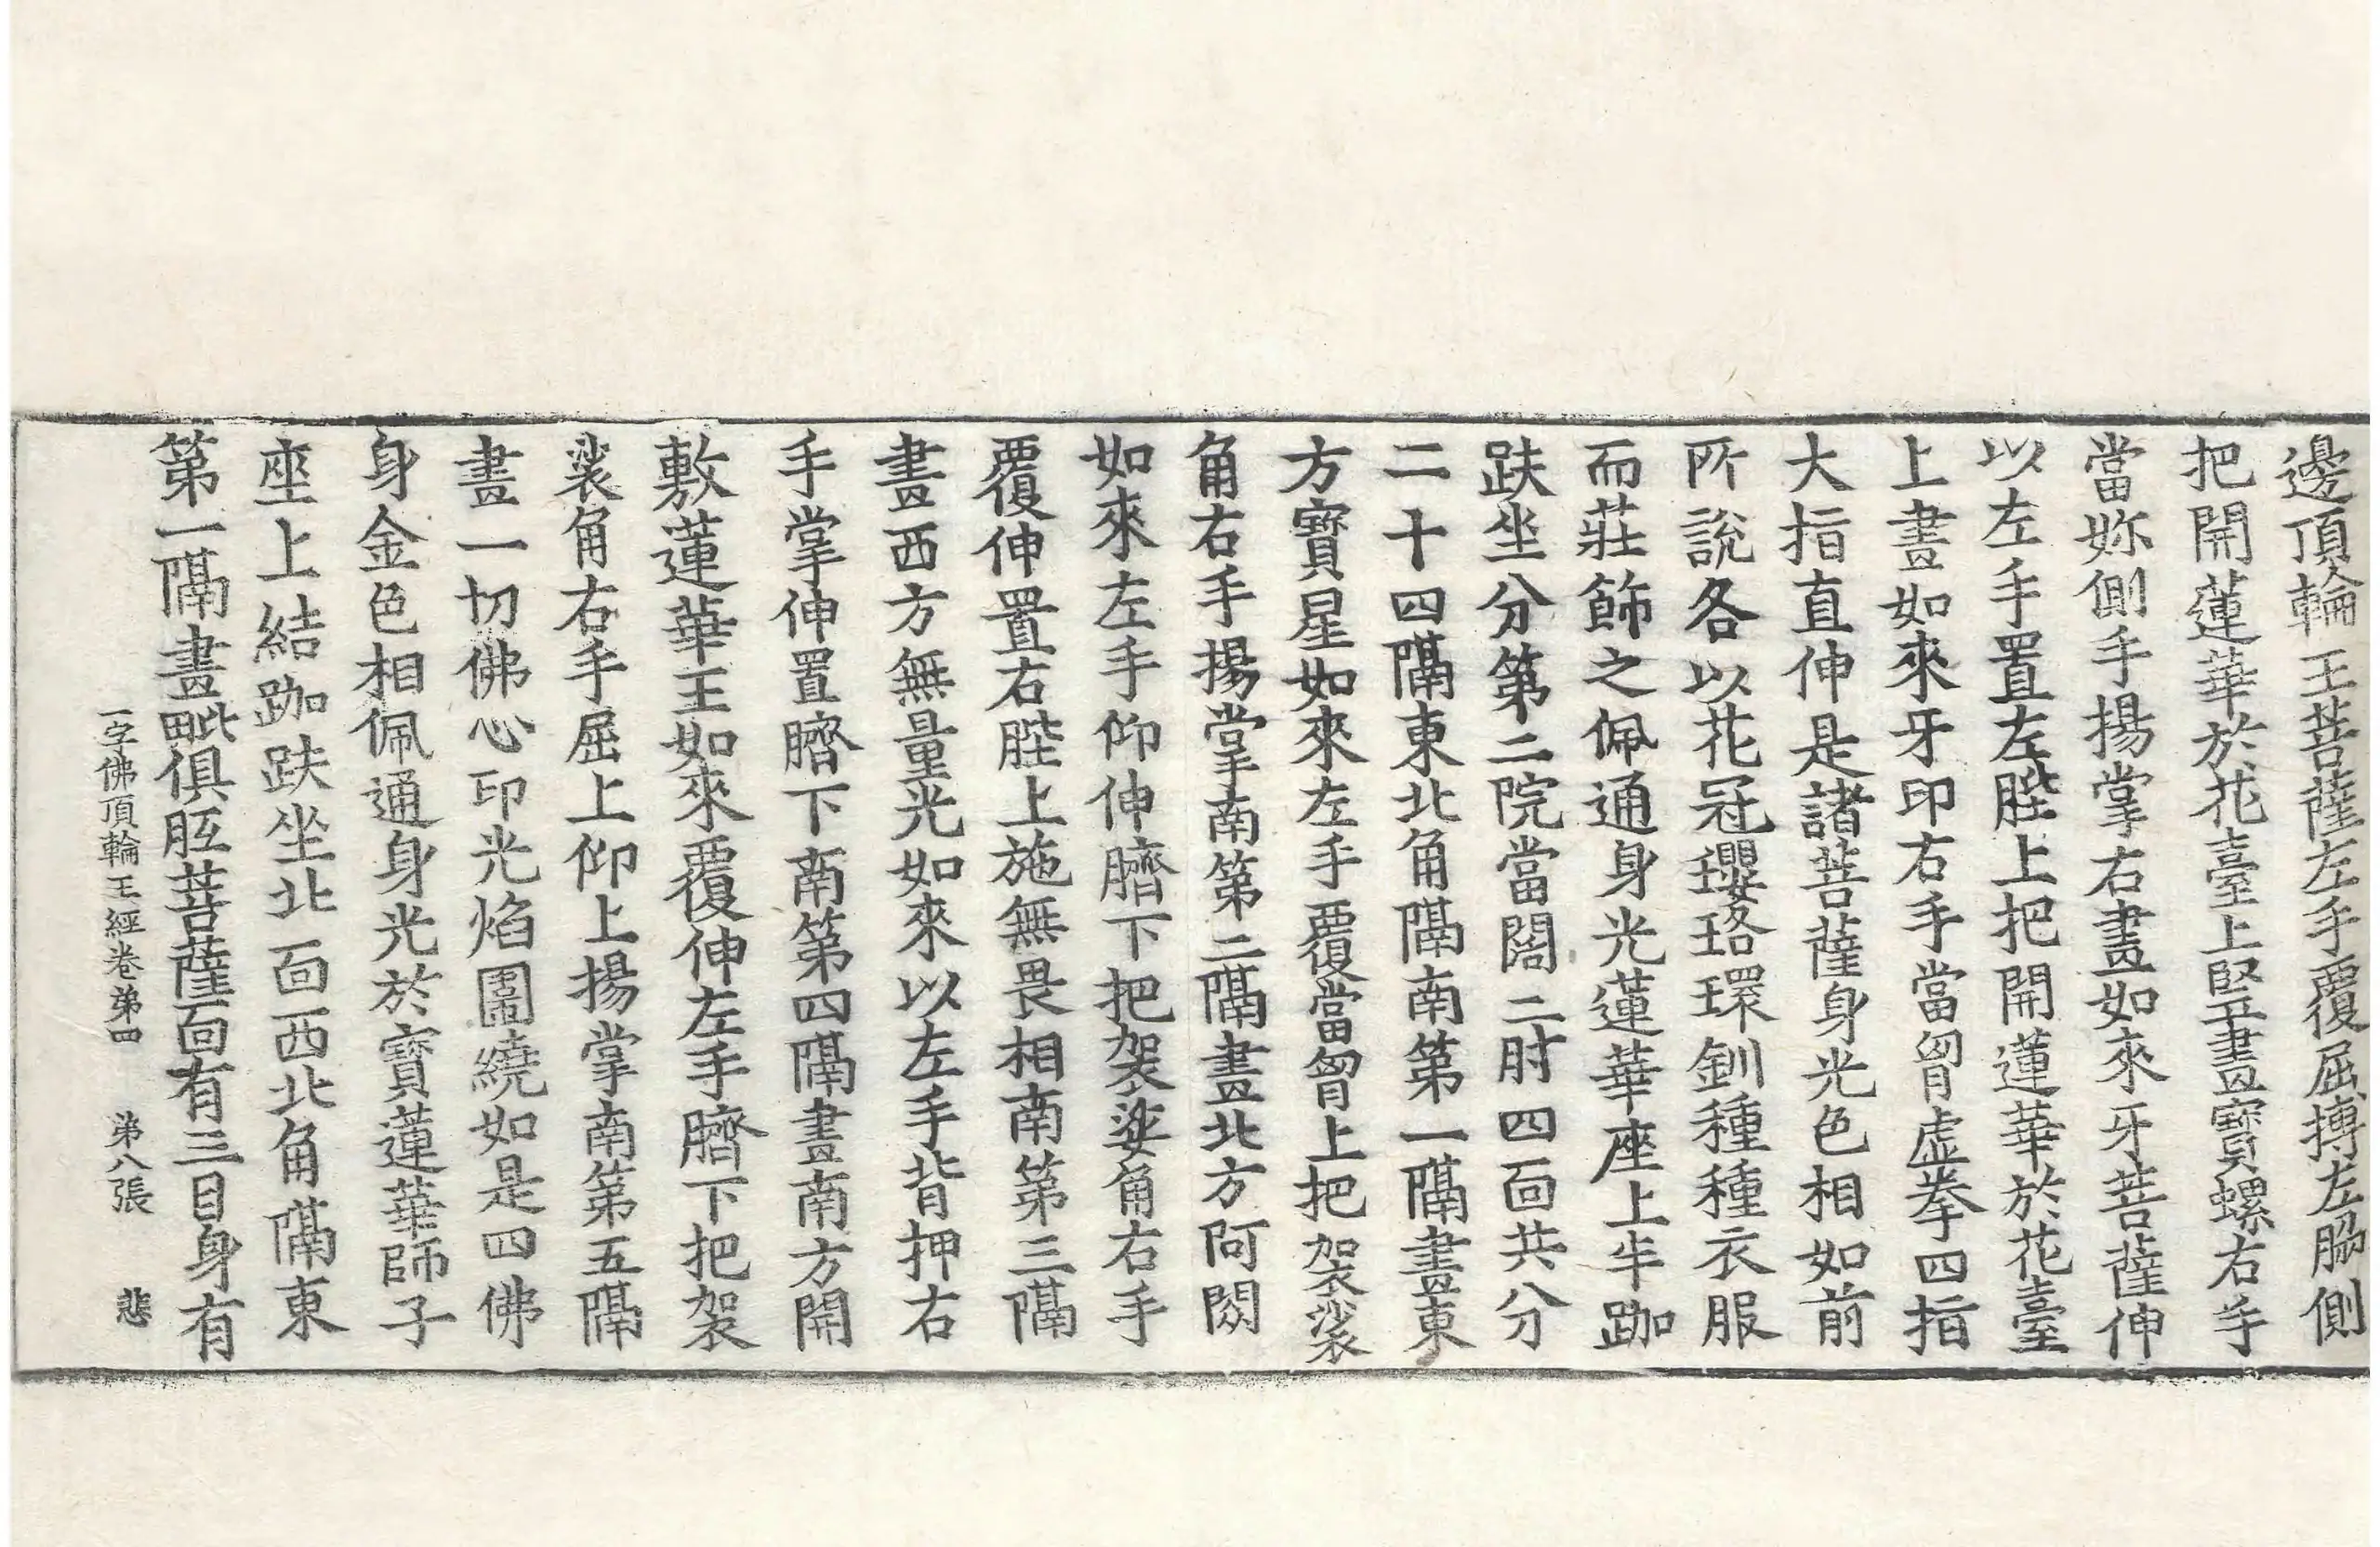 邊頂輪王菩薩左手覆屈搏左𦚾側
把開蓮華於花臺上竪畫寶螺右手
當妳側手揚掌右畫如來牙菩薩伸
以左手置左䏶上把開蓮華於花臺
上畫如來牙印右手當胷虛拳四指
大指直伸是諸菩薩身光色相如前
所說各以花冠瓔珞環釧種種衣服
而莊飾之佩通身光蓮華座上半跏
趺坐分第二院當闊二肘四面共分
二十四隔東北角隔南第一隔畫東
方寶星如來左手覆當胷上把袈裟
角右手揚掌南第二隔畫北方阿閦
如來左手仰伸臍下把袈裟角右手
覆伸置右䏶上施無畏相南第三隔
畫西方無量光如來以左手背押右
手掌伸置臍下南第四隔畫南方開
敷蓮華王如來覆伸左手臍下把袈
裟角右手屈上仰上揚掌南第五隔
畫一切佛心印光焰圍繞如是四佛
身金色相佩通身光於寶蓮華師子
座上結跏趺坐北面西北角隔東
第一隔畫毗俱胝菩薩面有三目身有
一字佛頂輪王經卷第四 第八張 悲